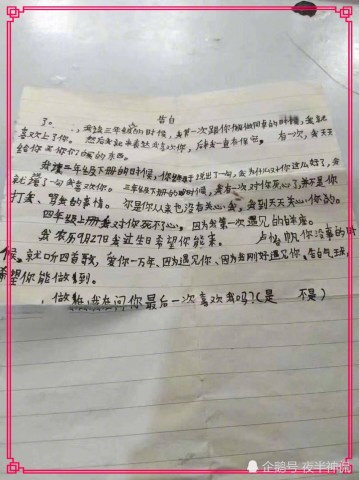 告白
了。、我读三年级的时候,我第一次跟你做同桌的时候,我就
喜欢上了你。然后我就半喜欢半喜欢你,后来我一直在保密。有一次,我天天
给你买你们喜欢的东西。
我读三年级下册的时候,你终于说出了一句,我为什么对你这么好了,我
就撞了一句我喜欢你。三年级下册的时候,我有一次对你死心了,并不是你
打我、骂我的事情。而是你从来也没有关心我,我到天天关心你的。
四年级上册我对你死不了心,因为我第一次遇见的缘意。
我农历9月27日我过生日希望你能来。卢 帆你没事的时
候,就听四首歌,爱你一万年、因为遇见你、因为我刚好遇见你、告白气球,
希望你能做到。
做 我在问你最后一次喜欢我吗?(是 不是)
企鹅号 夜半神侃